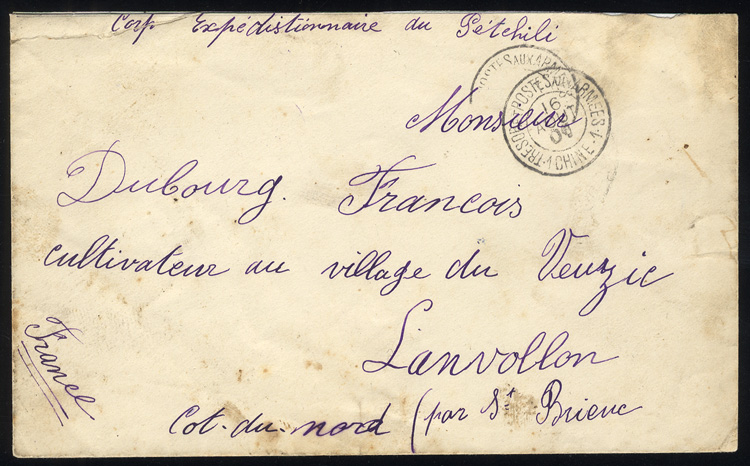 Corp Expédistionnaire du Pétchili
OSTES AUX ARM
TRESOR ET POSTES AUX ARMEES
16
CHINE 1
Monsieur
Dubourg. Francois
cultivateur au village du Veuzic
Lanvollon
France
Cot-du-nord (par St Brieuc